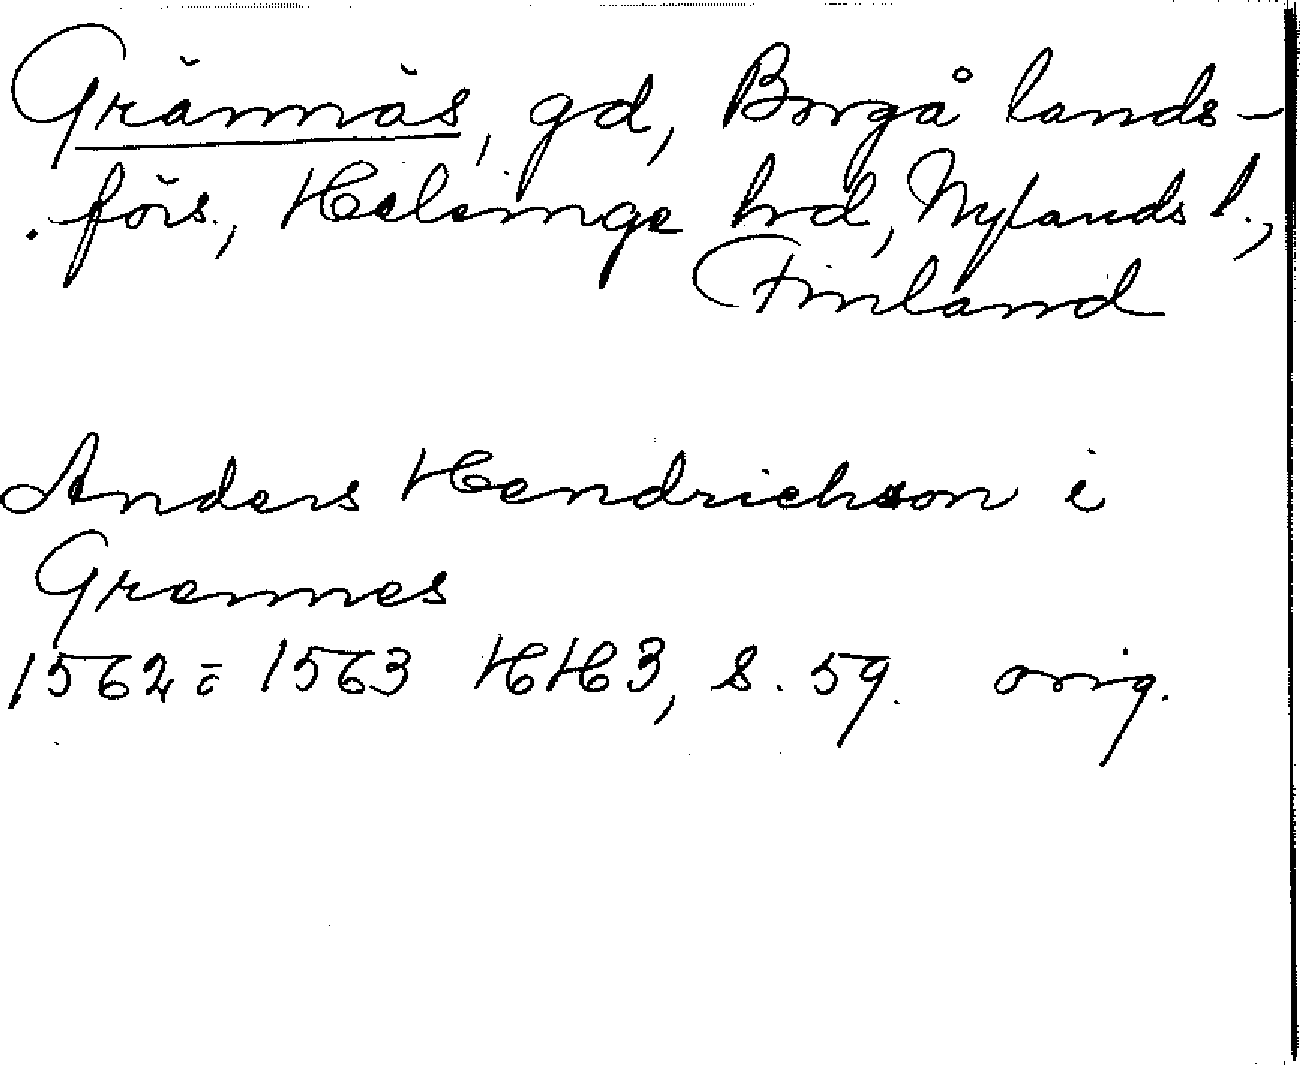 Grännäs, gd, Borgå lands-
förs., Helsinge hrd, Nylands l.,
Finland
Anders Hendrichson i
Grennes
1562 = 1563 HH3, s. 59. orig.